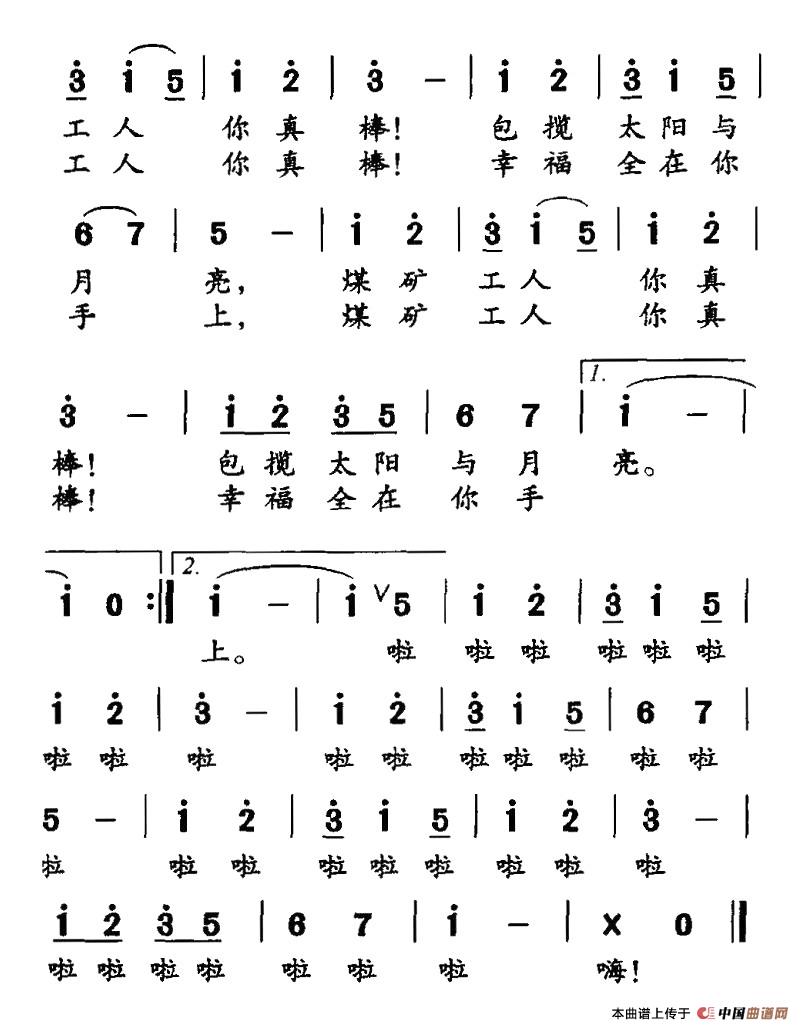 3 1 5 | 1 2 | 3 － | 1 2 | 3 1 5 |
工人 你真 棒！ 包揽 太阳与
工人 你真 棒！ 幸福 全在你
6 7 | 5 － | 1 2 | 3 1 5 | 1 2 |
月 亮， 煤矿 工人 你真
手 上， 煤矿 工人 你真
1.
3 － | 1 2 3 5 | 6 7 | 1 － |
棒！ 包揽太阳 与月 亮。
棒！ 幸福全在 你手
2.
1 0 :| 1 － | 1 ∨ 5 | 1 2 | 3 1 5 |
上。 啦 啦啦 啦啦啦
1 2 | 3 － | 1 2 | 3 1 5 | 6 7 |
啦啦 啦 啦啦 啦啦啦 啦啦
5 － | 1 2 | 3 1 5 | 1 2 | 3 － |
啦 啦啦 啦啦啦 啦啦 啦
1 2 3 5 | 6 7 | 1 － | X 0 ‖
啦啦啦啦 啦啦 啦 嗨！
本曲谱上传于 中国曲谱网